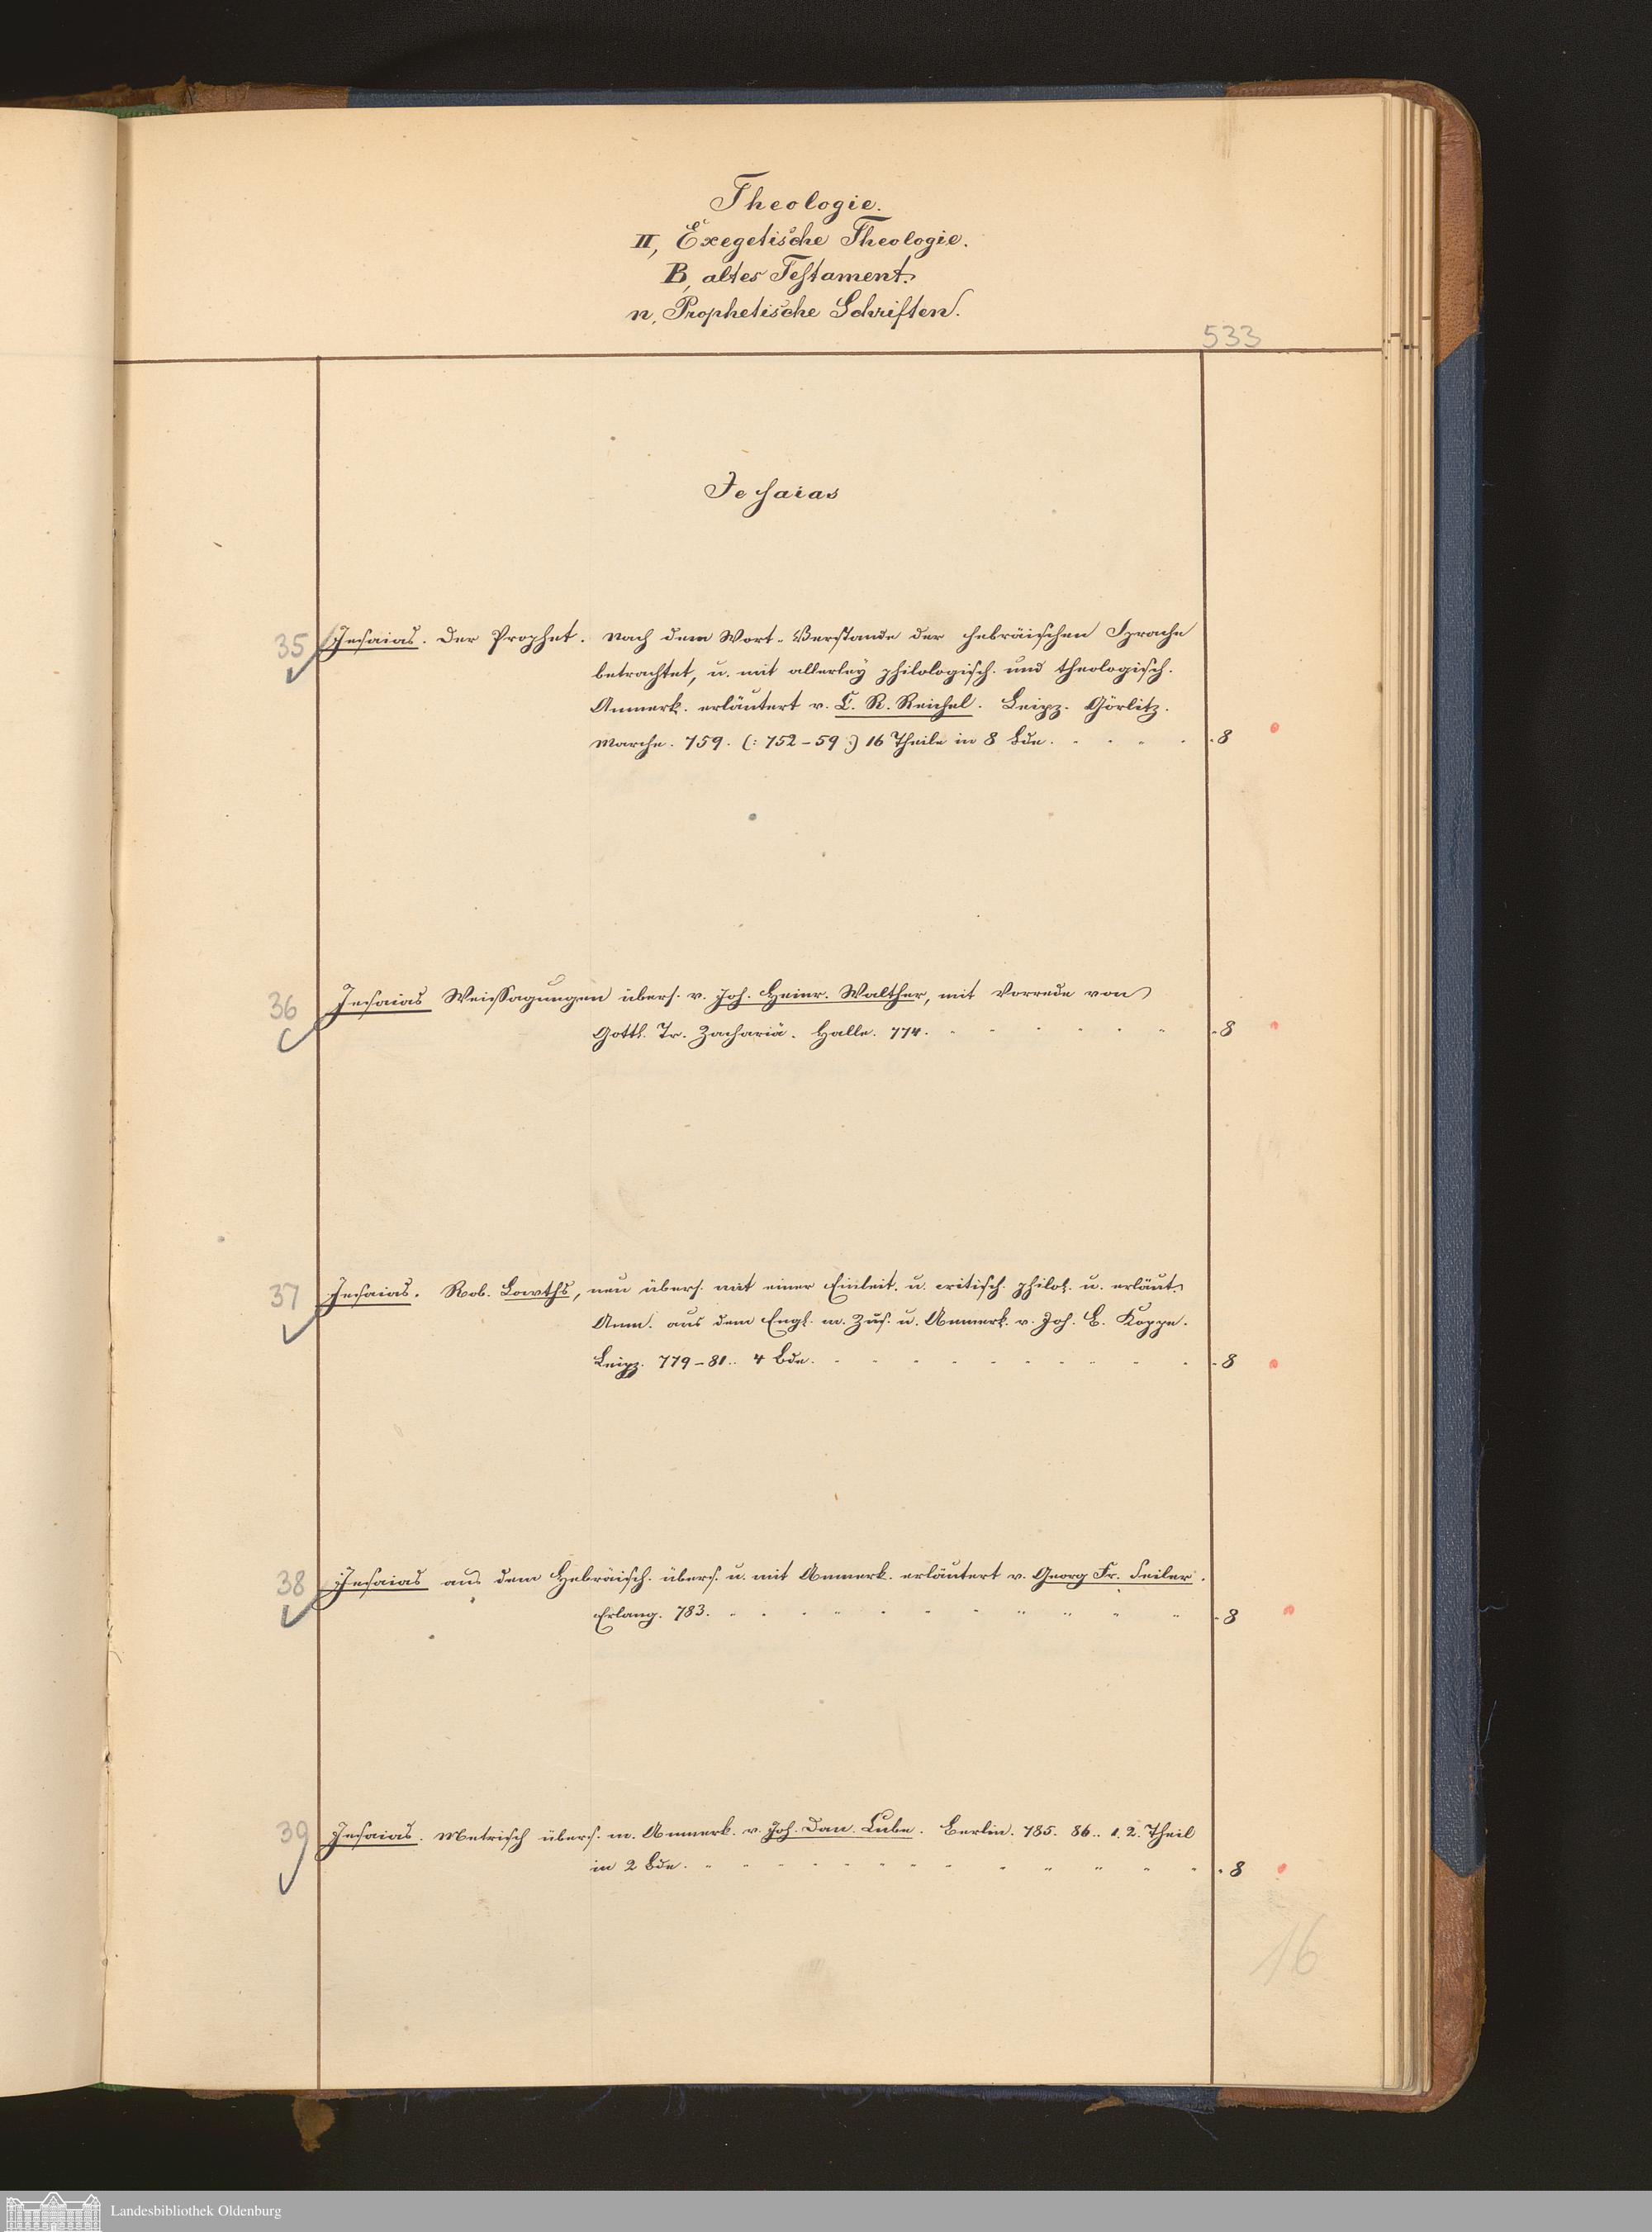 Theologie.
II, Exegetische Theologie.
B, altes Testament.
n, Prophetische Schriften.
533
Jesaias
35 Jesaias. Der Prophet. Nach dem Wort-Verstande der hebräischen Sprache
betrachtet, u. mit allerley philologisch. und theologisch.
Anmerk. erläutert v. C. R. Reichel. Leipz. Görlitz.
Marche. 759. (: 752-59 :) 16 Theile in 8 Bde. 8
36 Jesaias Weissagungen übers. v. Joh. Heinr. Walther, mit Vorrede von
Gottl. Tr. Zachariä. Halle. 774. 8
37 Jesaias. Rob. Lowths, neu übers. mit einer Einleit. u. critisch. philol. u. erläut.
Anm. aus dem Engl. m. Zus. u. Anmerk. v. Joh. B. Koppe.
Leipz. 779-81.. 4 Bde. 8
38 Jesaias aus dem Hebräisch. übers. u. mit Anmerk. erläutert v. Georg Fr. Seiler.
Erlang. 783. 8
39 Jesaias. Metrisch übers. m. Anmerk. v. Joh. Dan. Cube. Berlin. 785. 86.. 1. 2. Theil
in 2 Bde. 8
16
Landesbibliothek Oldenburg